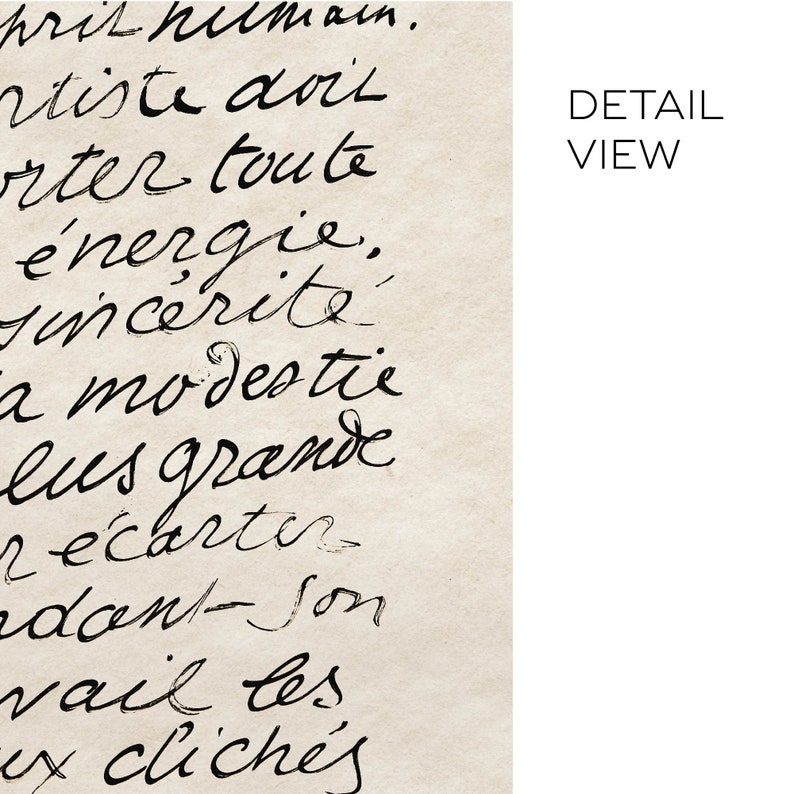 prit humain.
rtiste doit
orter toute
énergie,
sincérité
a modestie
lus grande
r écarter
ndant son
vail les
ux clichés
DETAIL
VIEW